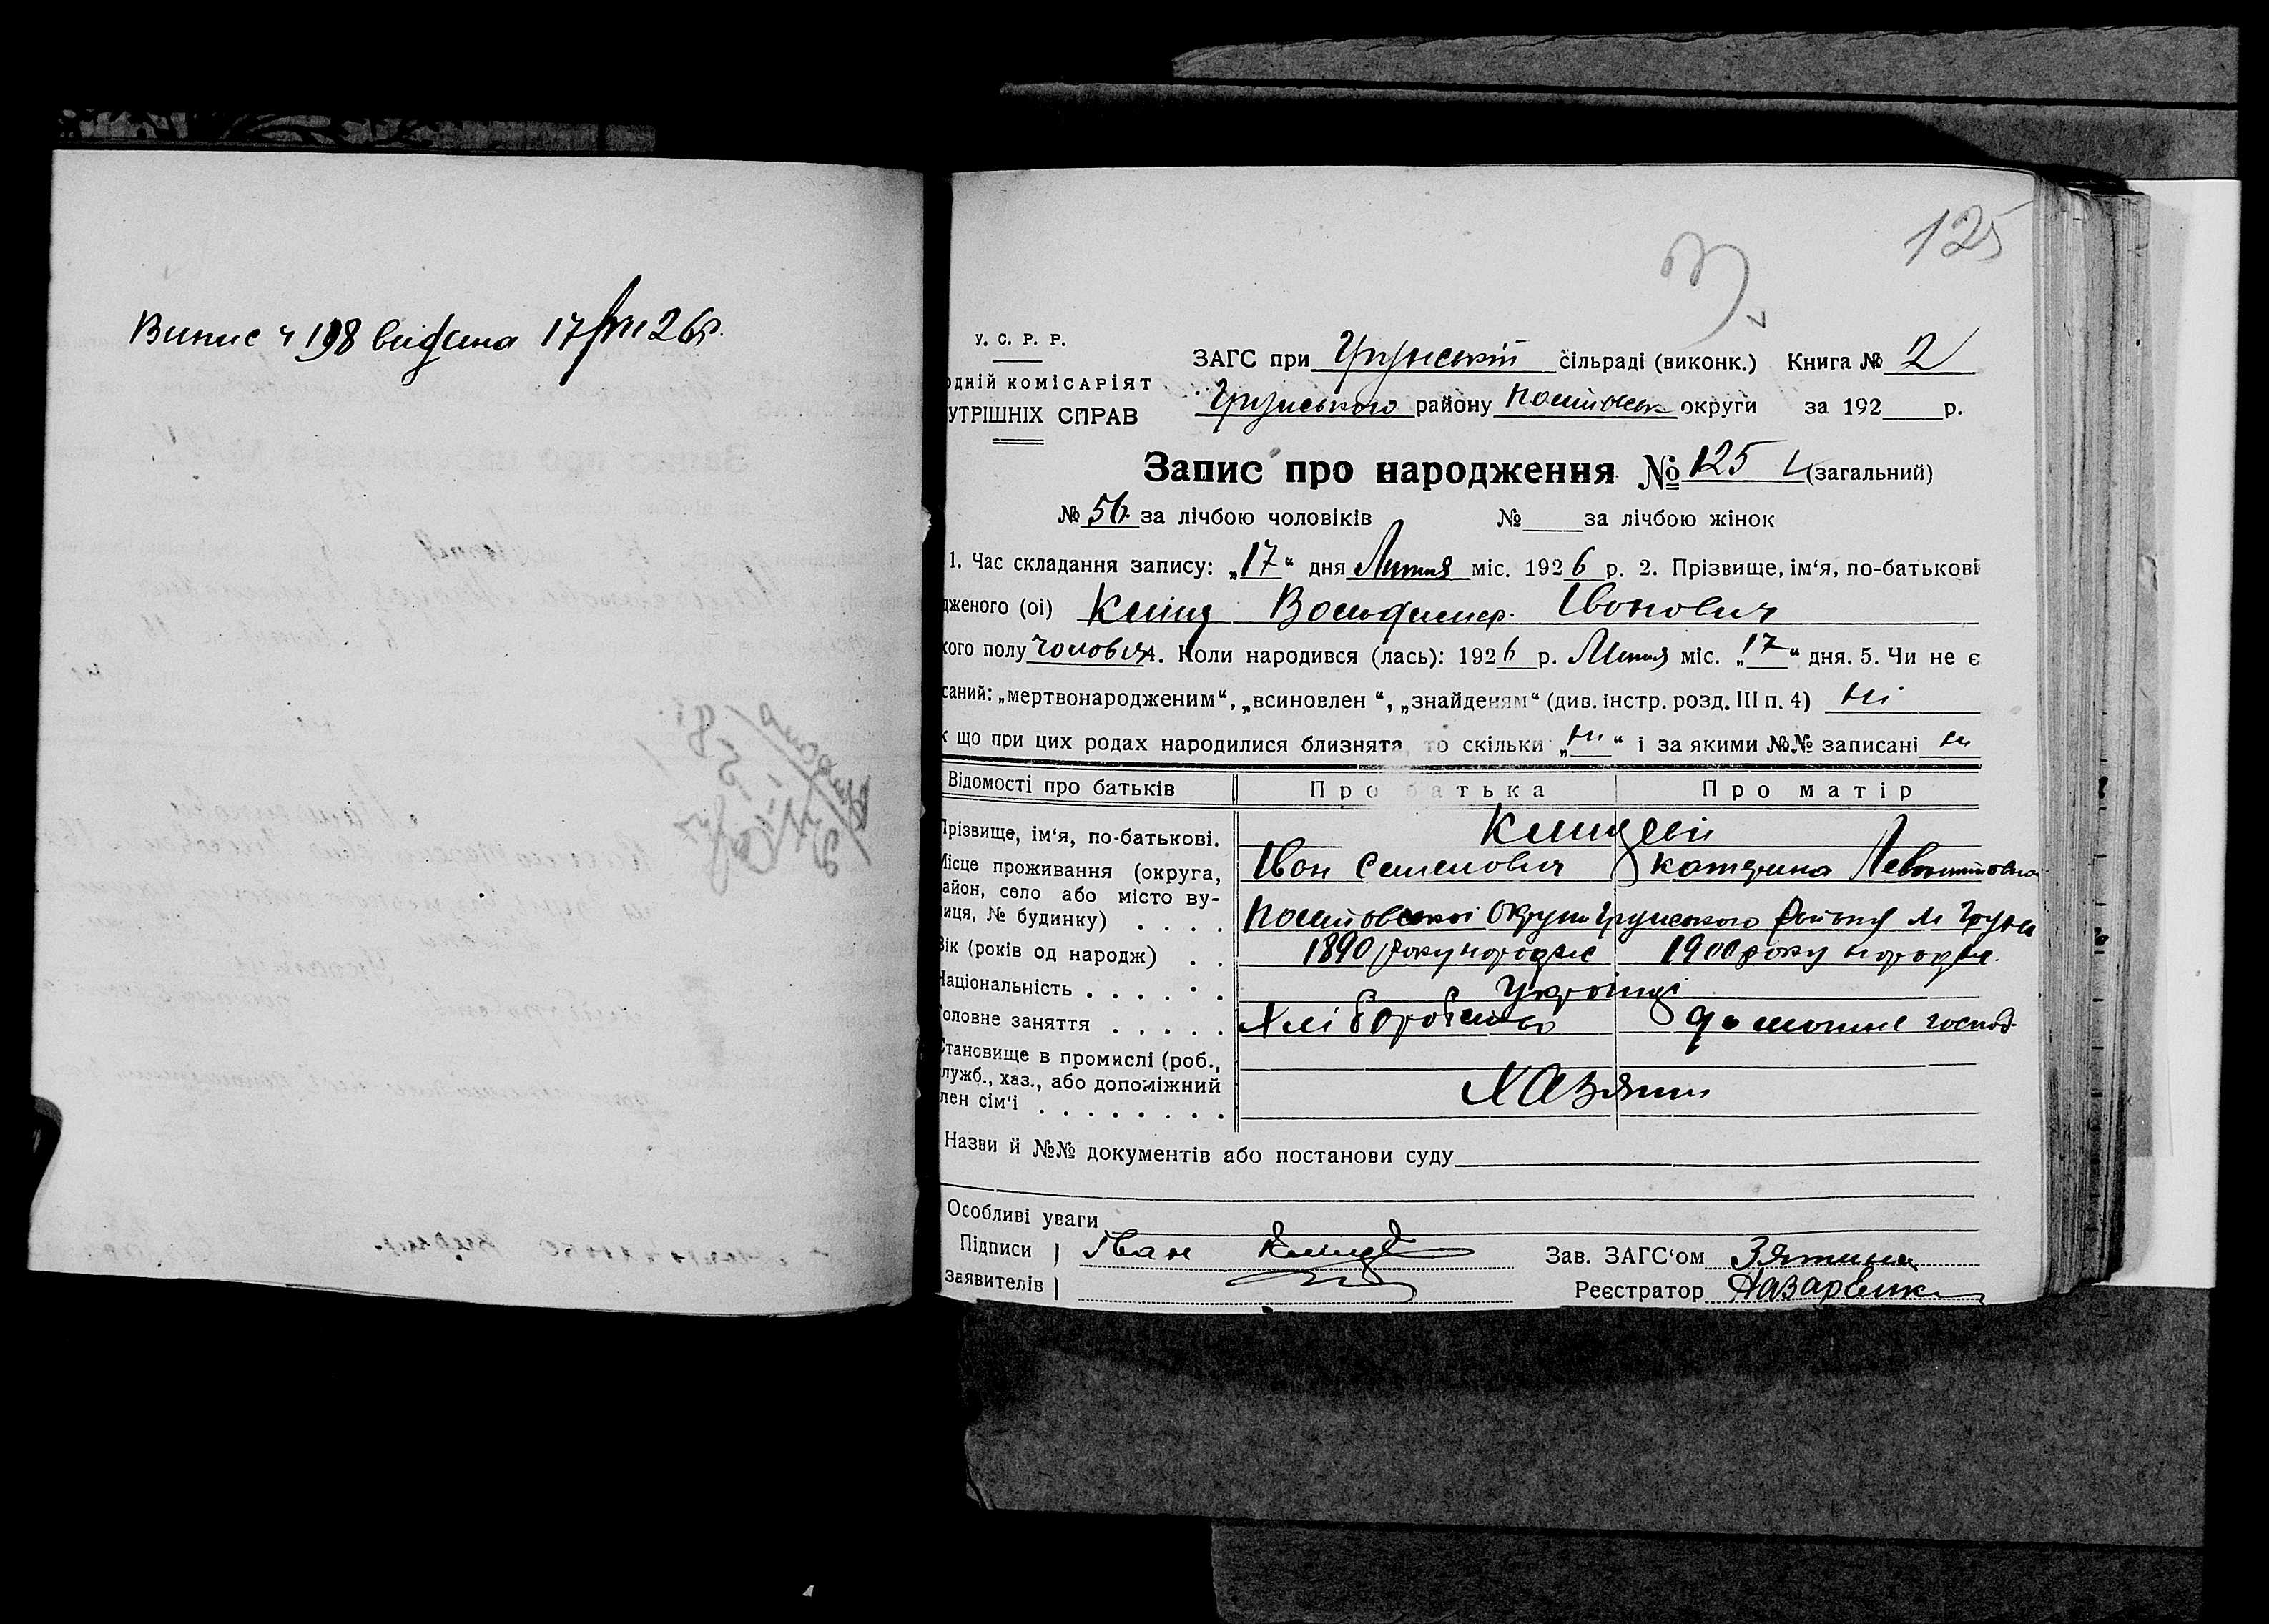 Випис ч 198 видана 17/VII 26р.
125
У. С. Р. Р.
одній комісаріят
УТРІШНІХ СПРАВ
ЗАГС при Грунській сільраді (виконк.) Книга № 2
Грунського району округи за 192 р.
Запис про народження № 125 (загальний)
№ 56 за лічбою чоловіків № за лічбою жінок
1. Час складання запису: „17“ дня Липня міс. 1926 р. 2. Прізвище, ім‘я, по-батькові
дженого (ої) Володимер. Іванович
кого полу чоловіч 4. Коли народився (лась): 1926 р. Липня міс. „17“ дня. 5. Чи не є
саний: „мертвонародженим“, „всиновлен “, „знайденям“ (див. інстр. розд. III п. 4) ні
к що при цих родах народилися близнята, то скільки „ні“ і за якими №№ записані ні
Відомості про батьків Про батька Про матір
Прізвище, ім‘я, по-батькові.
Іван Семенович Катерина Левонтиовна
Місце проживання (округа,
айон, село або місто ву-
лиця, № будинку) . . . . Округи Грунського району м Грунь
Вік (років од народж) . . 1890 року народже 1900 року народже.
Національність . . . . . . Українці
Головне заняття . . . . . Хліборобство домашнє господ.
Становище в промислі (роб.,
служб., хаз., або допоміжний
лен сім‘ї . . . . . . . . Хазяїни
Назви й №№ документів або постанови суду
Особливі уваги
Підписи ) Іван Зав. ЗАГС‘ом
заявителів ) Реєстратор Назаренк